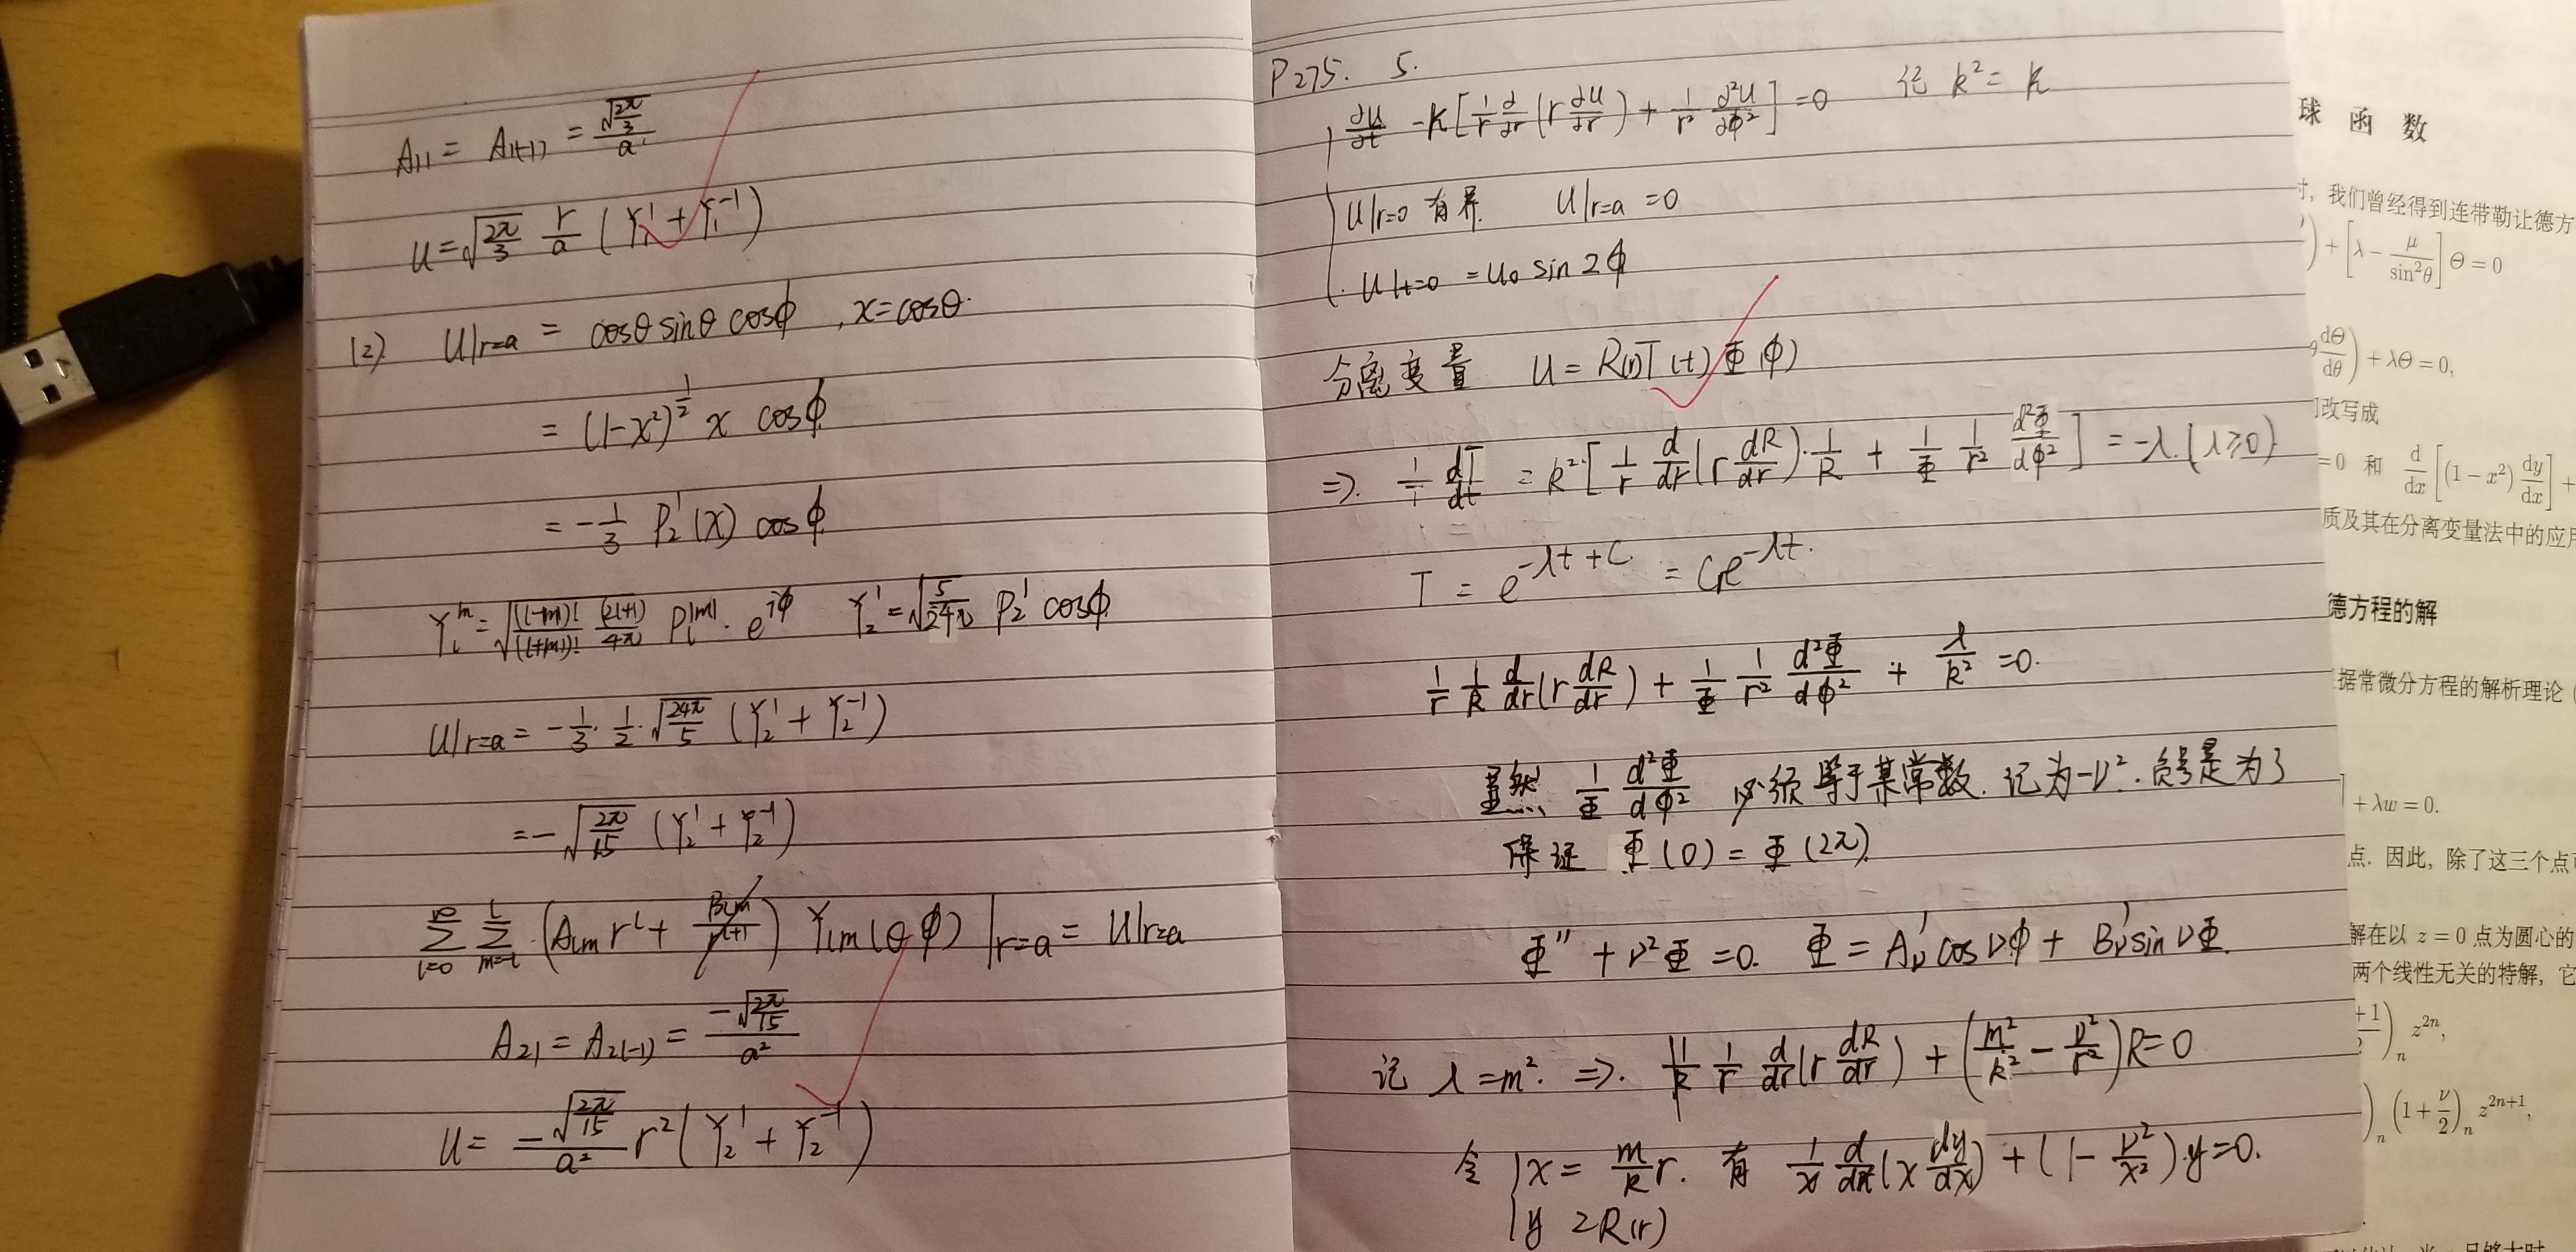 A₁₁ = A₁₍₋₁₎ = √(2π/3) / a
u = √(2π/3) r/a (Y₁¹ + Y₁⁻¹)
(2) u|r=a = cosθ sinθ cosϕ , x=cosθ.
= (1-x²)^(1/2) x cosϕ
= -1/3 P₂¹(x) cosϕ
Yₗᵐ = √((l-m)!/(l+m)! (2l+1)/4π) Pₗ^|m| · e^(iϕ) Y₂¹ = √(5/24π) P₂¹ cosϕ
u|r=a = -1/3 · 1/2 · √(24π/5) (Y₂¹ + Y₂⁻¹)
= -√(2π/15) (Y₂¹ + Y₂⁻¹)
∑(l=0,∞) ∑(m=-l,l) (Aₗₘ rˡ + Bₗₘ/r^(l+1)) Yₗₘ(θ ϕ) |r=a = u|r=a
A₂₁ = A₂₍₋₁₎ = -√(2π/15) / a²
u = -√(2π/15) / a² r² (Y₂¹ + Y₂⁻¹)
P275. 5.
∂u/∂t - κ[1/r ∂/∂r (r ∂u/∂r) + 1/r² ∂²u/∂ϕ²] = 0 记 k² = κ
u|r=0 有界. u|r=a = 0
u|t=0 = u₀ sin 2ϕ
分离变量 u = R(r)T(t)Φ(ϕ)
⇒. 1/T dT/dt = k²·[1/r d/dr (r dR/dr)·1/R + 1/Φ 1/r² d²Φ/dϕ²] = -λ. (λ≥0)
T = e^(-λt+C) = C₁e^(-λt).
1/r 1/R d/dr (r dR/dr) + 1/Φ 1/r² d²Φ/dϕ² + λ/k² = 0.
显然 1/Φ d²Φ/dϕ² 必须等于某常数. 记为-ν². 负号是为了
保证 Φ(0) = Φ(2π).
Φ'' + ν²Φ = 0. Φ = Aν' cosνϕ + Bν' sinνΦ.
记 λ = m². ⇒. 1/r d/dr (r dR/dr) + (m²/k² - ν²/r²)R = 0
令 x = m/k r. 有 1/x d/dx (x dy/dx) + (1 - ν²/x²)·y = 0.
y = R(r)
球 函 数
时, 我们曾经得到连带勒让德方
) + [λ - μ/sin²θ] Θ = 0
dΘ/dθ) + λΘ = 0,
改写成
=0 和 d/dx [(1-x²) dy/dx] +
质及其在分离变量法中的应用
德方程的解
据常微分方程的解析理论
] + λw = 0.
点. 因此, 除了这三个点
解在以 z = 0 点为圆心的
两个线性无关的特解, 它
)ₙ z²ⁿ,
)ₙ (1 + ν/2)ₙ z²ⁿ⁺¹,